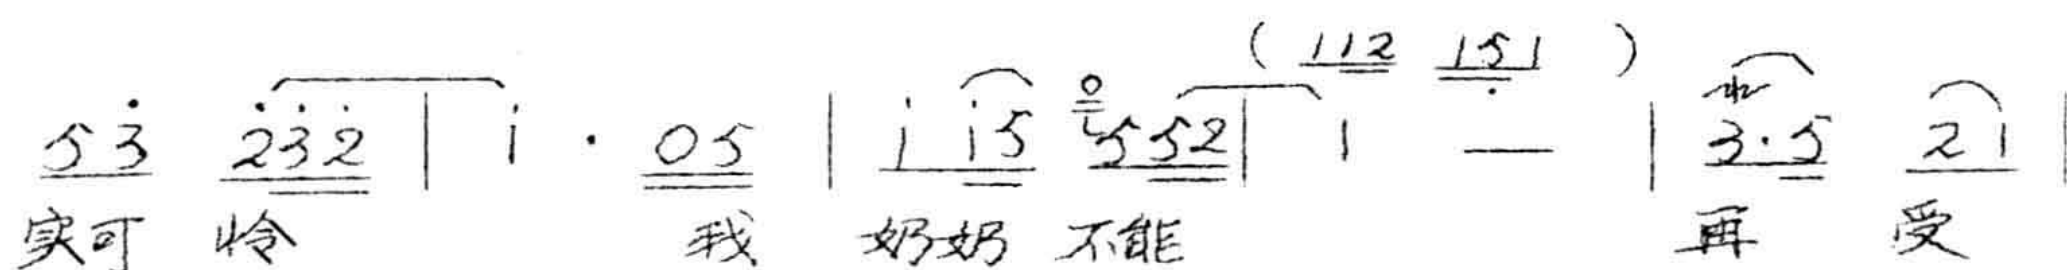 (112 151)
53 232 | i · 05 | i i5 552 | 1 — | 3·5 21 |
实可 怜 我 奶奶 不能 再 受